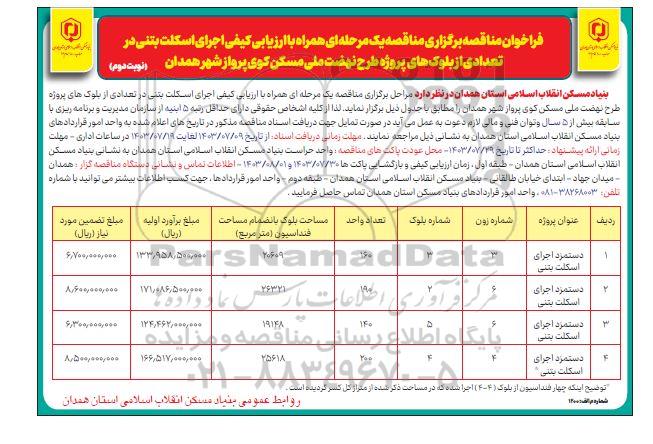 فراخوان مناقصه برگزاری مناقصه یک مرحله‌ای همراه با ارزیابی کیفی اجرای اسکلت بتنی در
تعدادی از بلوک‌های پروژه طرح نهضت ملی مسکن کوی پرواز شهر همدان
(نوبت دوم)
بنیاد مسکن انقلاب اسلامی استان همدان در نظر دارد مراحل برگزاری مناقصه یک مرحله ای همراه با ارزیابی کیفی اجرای اسکلت بتنی در تعدادی از بلوک های پروژه
طرح نهضت ملی مسکن کوی پرواز شهر همدان را مطابق با جدول ذیل برگزار نماید. لذا از کلیه اشخاص حقوقی دارای حداقل رتبه ۵ ابنیه از سازمان مدیریت و برنامه ریزی با
سابقه بیش از ۵ سال و توان فنی و مالی لازم دعوت به عمل می آید در صورت تمایل جهت دریافت اسناد مناقصه مذکور در تاریخ های اعلام شده به واحد امور قراردادهای
بنیاد مسکن انقلاب اسلامی استان همدان به نشانی ذیل مراجعه نمایند. مهلت زمانی دریافت اسناد: از تاریخ ۱۴۰۳/۰۷/۰۹ لغایت ۱۴۰۳/۰۷/۱۹ در ساعات اداری - مهلت
زمانی ارائه پیشنهاد: حداکثر تا تاریخ ۱۴۰۳/۰۷/۲۹- محل عودت پاکت های مناقصه: واحد حراست بنیاد مسکن انقلاب اسلامی استان همدان به نشانی بنیاد مسکن
انقلاب اسلامی استان همدان - طبقه اول. زمان ارزیابی کیفی و بازگشایی پاکت ها ۱۴۰۳/۰۷/۳۰ و ۱۴۰۳/۰۸/۰۱ - اطلاعات تماس و نشانی دستگاه مناقصه گزار: همدان
- میدان جهاد - ابتدای خیابان طالقانی - بنیاد مسکن انقلاب اسلامی استان همدان - طبقه دوم - واحد امور قراردادها. جهت کسب اطلاعات بیشتر می توانید با شماره
تلفن: ۳۸۲۶۸۰۰۳-۰۸۱ واحد امور قراردادهای بنیاد مسکن استان همدان تماس حاصل فرمایید.
ردیف عنوان پروژه شماره زون شماره بلوک تعداد واحد مساحت بلوک بانضمام مساحت فنداسیون (متر مربع) مبلغ برآورد اولیه (ریال) مبلغ تضمین مورد نیاز (ریال)
۱ دستمزد اجرای اسکلت بتنی ۳ ۳ ۱۶۰ ۲۰۶۰۹ ۱۳۳,۹۵۸,۵۰۰,۰۰۰ ۶,۷۰۰,۰۰۰,۰۰۰
۲ دستمزد اجرای اسکلت بتنی ۶ ۲ ۱۹۰ ۲۶۳۲۱ ۱۷۱,۰۸۶,۵۰۰,۰۰۰ ۸,۶۰۰,۰۰۰,۰۰۰
۳ دستمزد اجرای اسکلت بتنی ۶ ۵ ۱۴۰ ۱۹۱۴۸ ۱۲۴,۴۶۲,۰۰۰,۰۰۰ ۶,۳۰۰,۰۰۰,۰۰۰
۴ دستمزد اجرای اسکلت بتنی* ۴ ۴ ۲۰۰ ۲۵۶۱۸ ۱۶۶,۵۱۷,۰۰۰,۰۰۰ ۸,۵۰۰,۰۰۰,۰۰۰
ParsNamadData
مرکز فرآوری اطلاعات پارس نماد داده ها
پایگاه اطلاع رسانی مناقصه و مزایده
۰۲۱-۸۸۳۴۹۶۷۰-۵
*توضیح اینکه چهار فنداسیون از بلوک (۴-۴) اجرا شده که در مساحت ذکر شده از متراژ کل کسر گردیده است.
شماره م الف: ۱۴۰۰
روابط عمومی بنیاد مسکن انقلاب اسلامی استان همدان